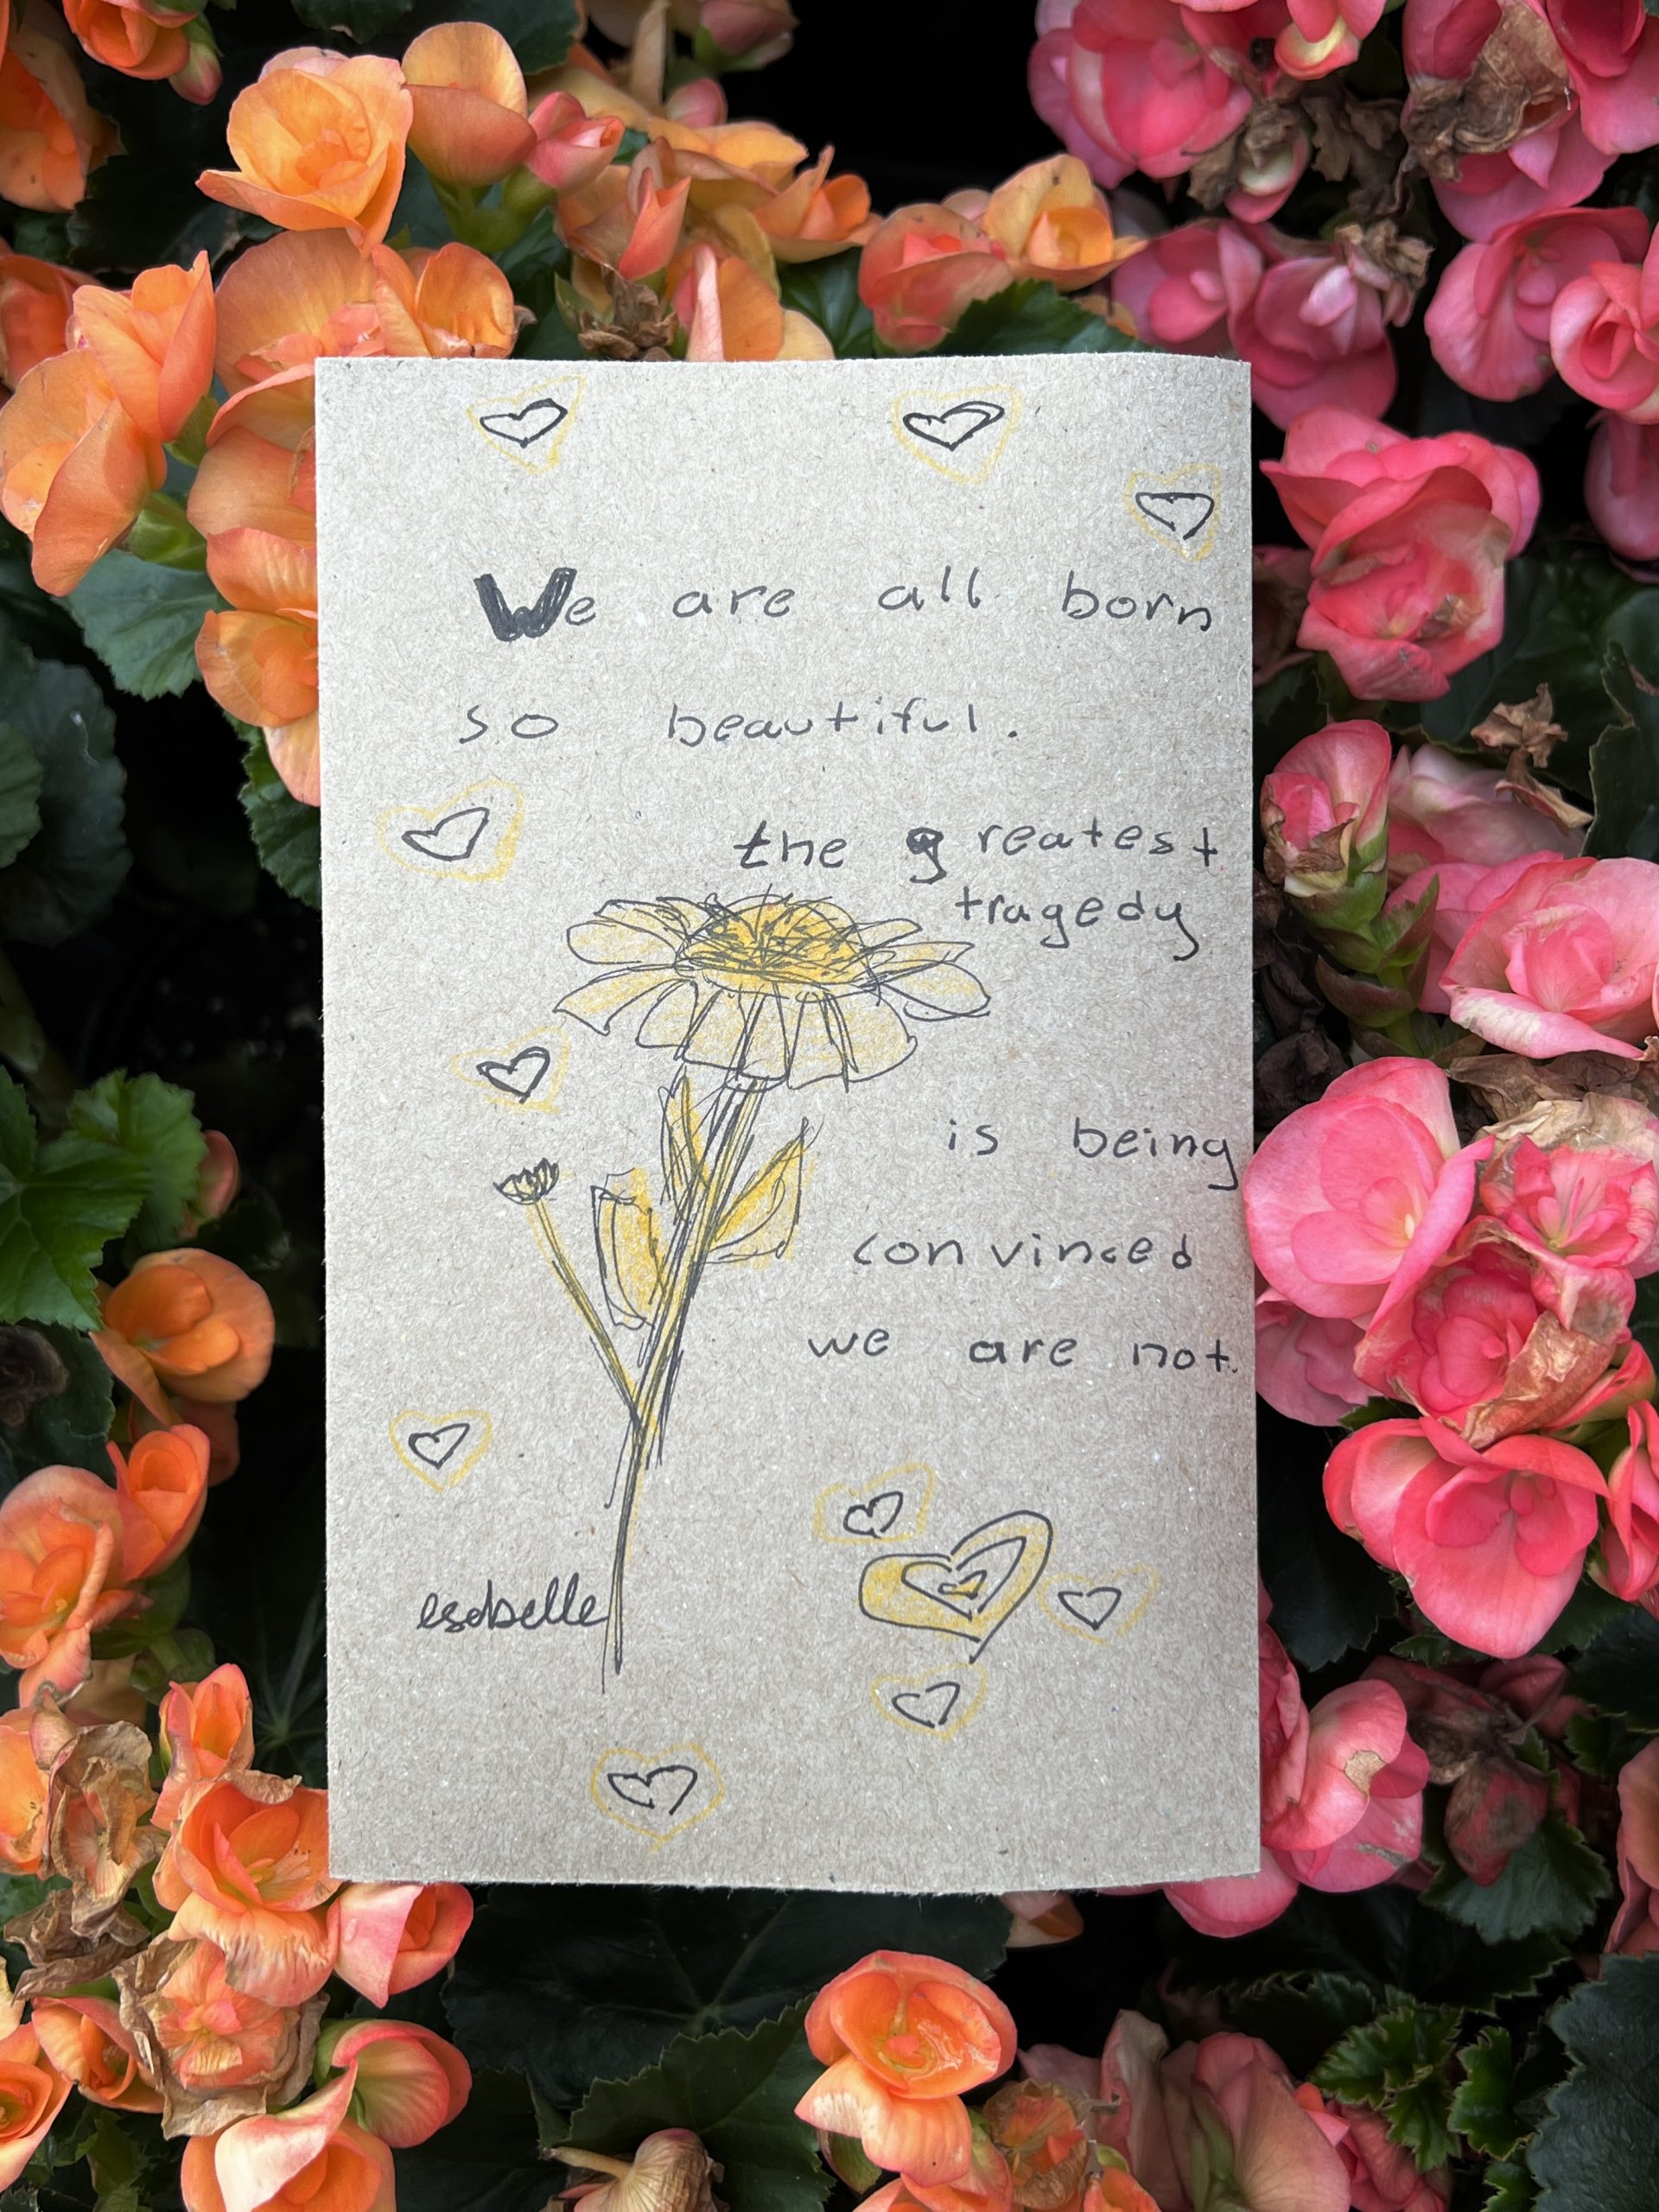 We are all born
so beautiful.
the greatest
tragedy
is being
convinced
we are not.
esabelle